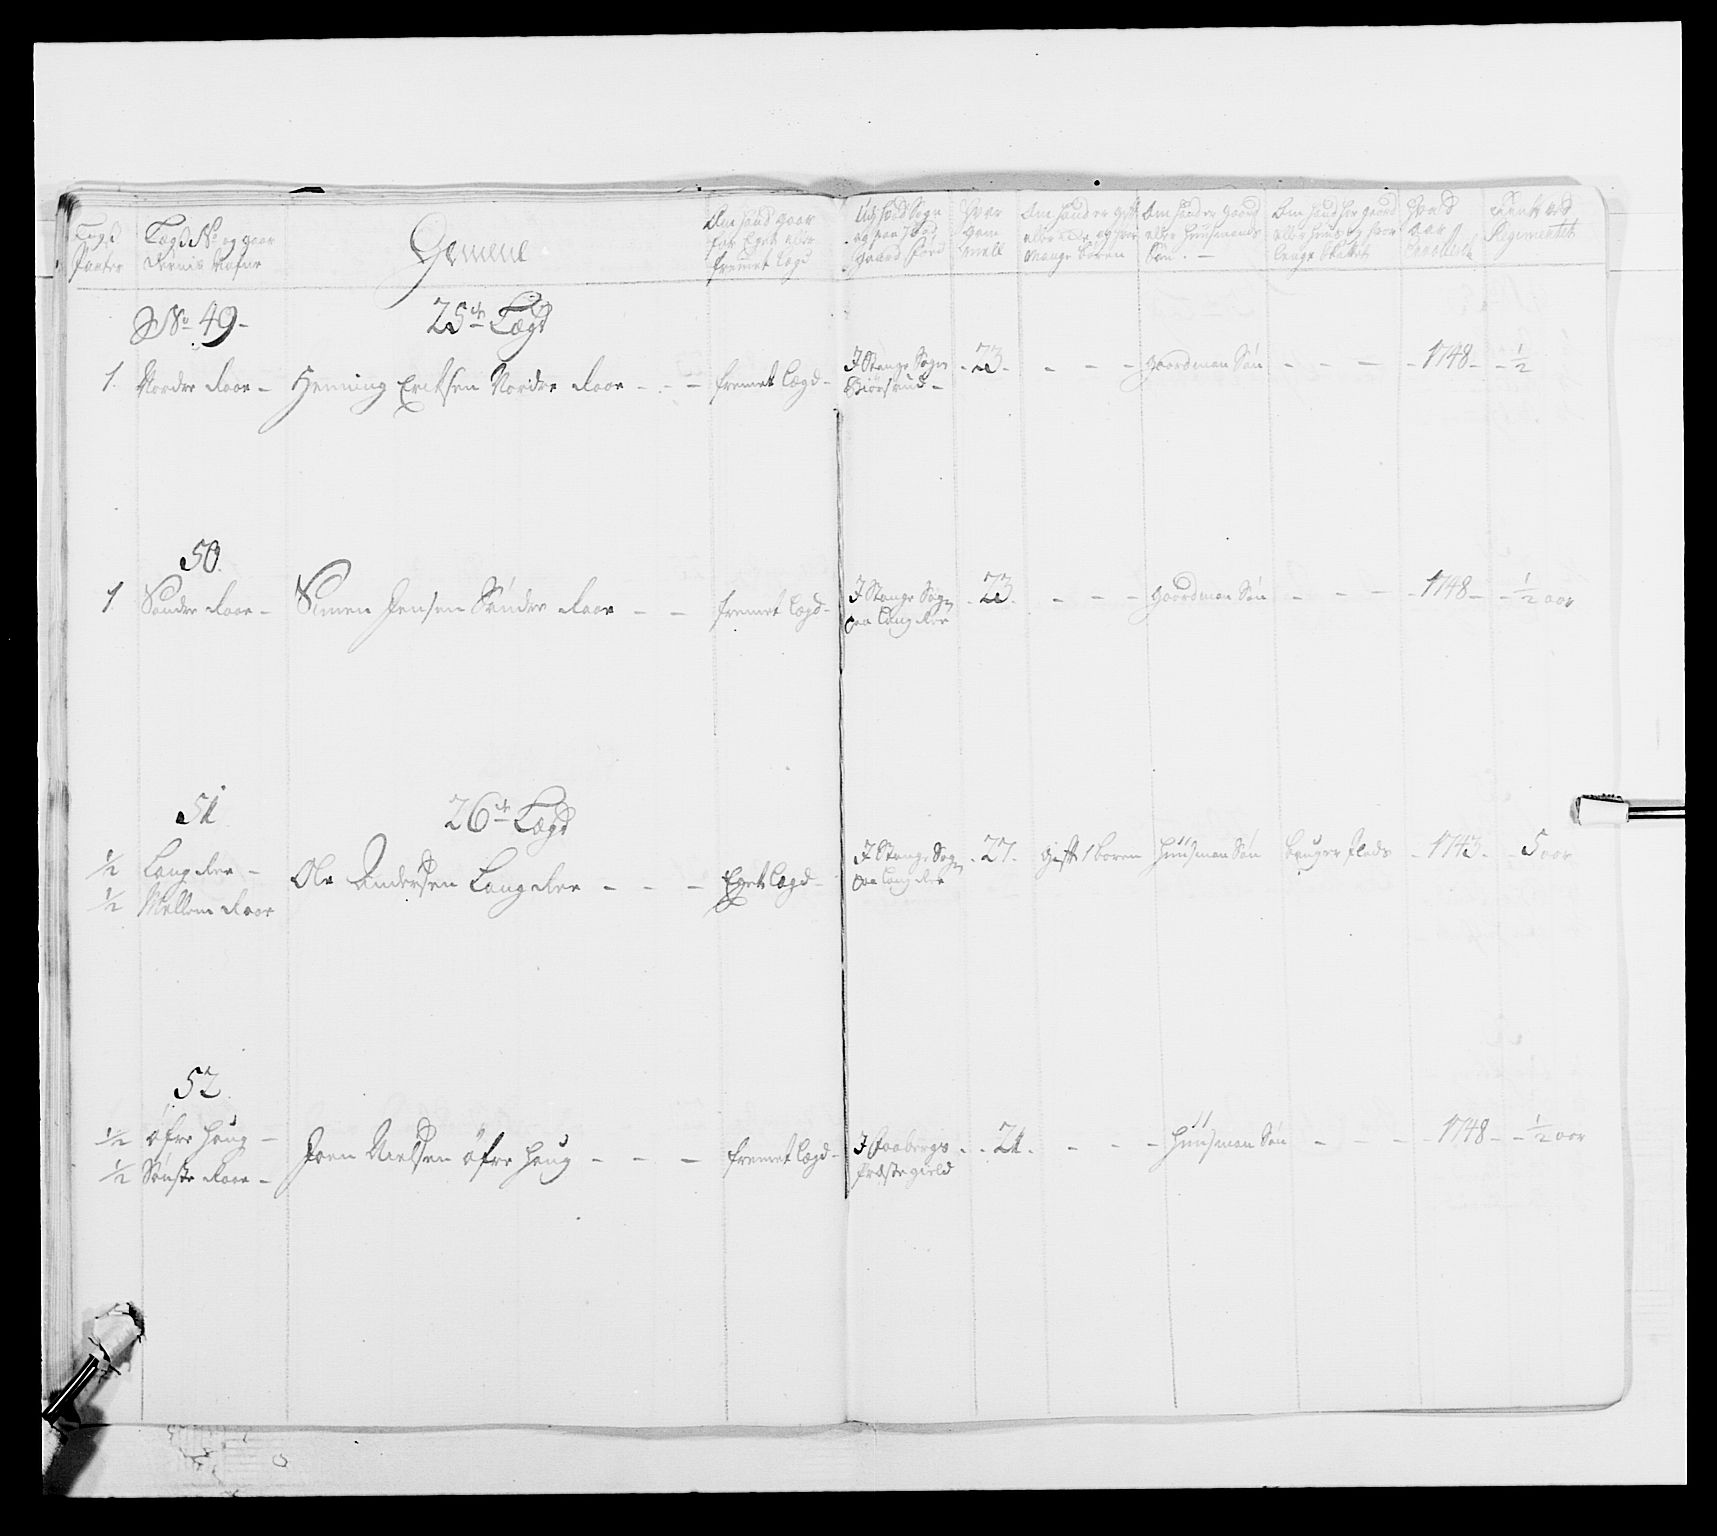 Lægds Parter
Lægds No og gaardernis Nafne
Gemene
Om hand gaar for Eget eller fremet Lægd
Udj hvad Sogn og paa hvad gaard fød
Hvor gammell
Om hand er gift eller Ede og hvor mange børen
Om hand er gaard eller huusmands Søn
Om hand har gaard eller huus og hvor lenge
Hvad aar
tient ved Regimentet
No 49 -
25de Lægd
1. Nordre Roar - Henning Eriksen Nordre Roar - - - fremet Lægd - I Stange Sogn - 23 - - - - gaardman Søn - - - - 1748 - - ½
50.
1. Søndre Roar - Simen Jensen Søndre Roar - - fremet Lægd - I Stange Sogn paa Lang Ree - 23. - - - gaardman Søn - - - - 1748 - - ½ aar
51
26de Lægd
½ Lang Ree -
½ Mellom Roar
Ole Andersen Lang Ree - - - Eget Lægd - I Stange Sogn paa Lang Ree - 27. gift 1 boren huusman Søn bruger Pleds - 1743. - 5 aar
52.
½ øfre Haug -
½ Sønste Roar -
Joen Nielsen øfre Haug - - - fremet Lægd - I Faabergs Præstegield - 21. - - - huusman Søn - - - - 1748 - - ½ aar